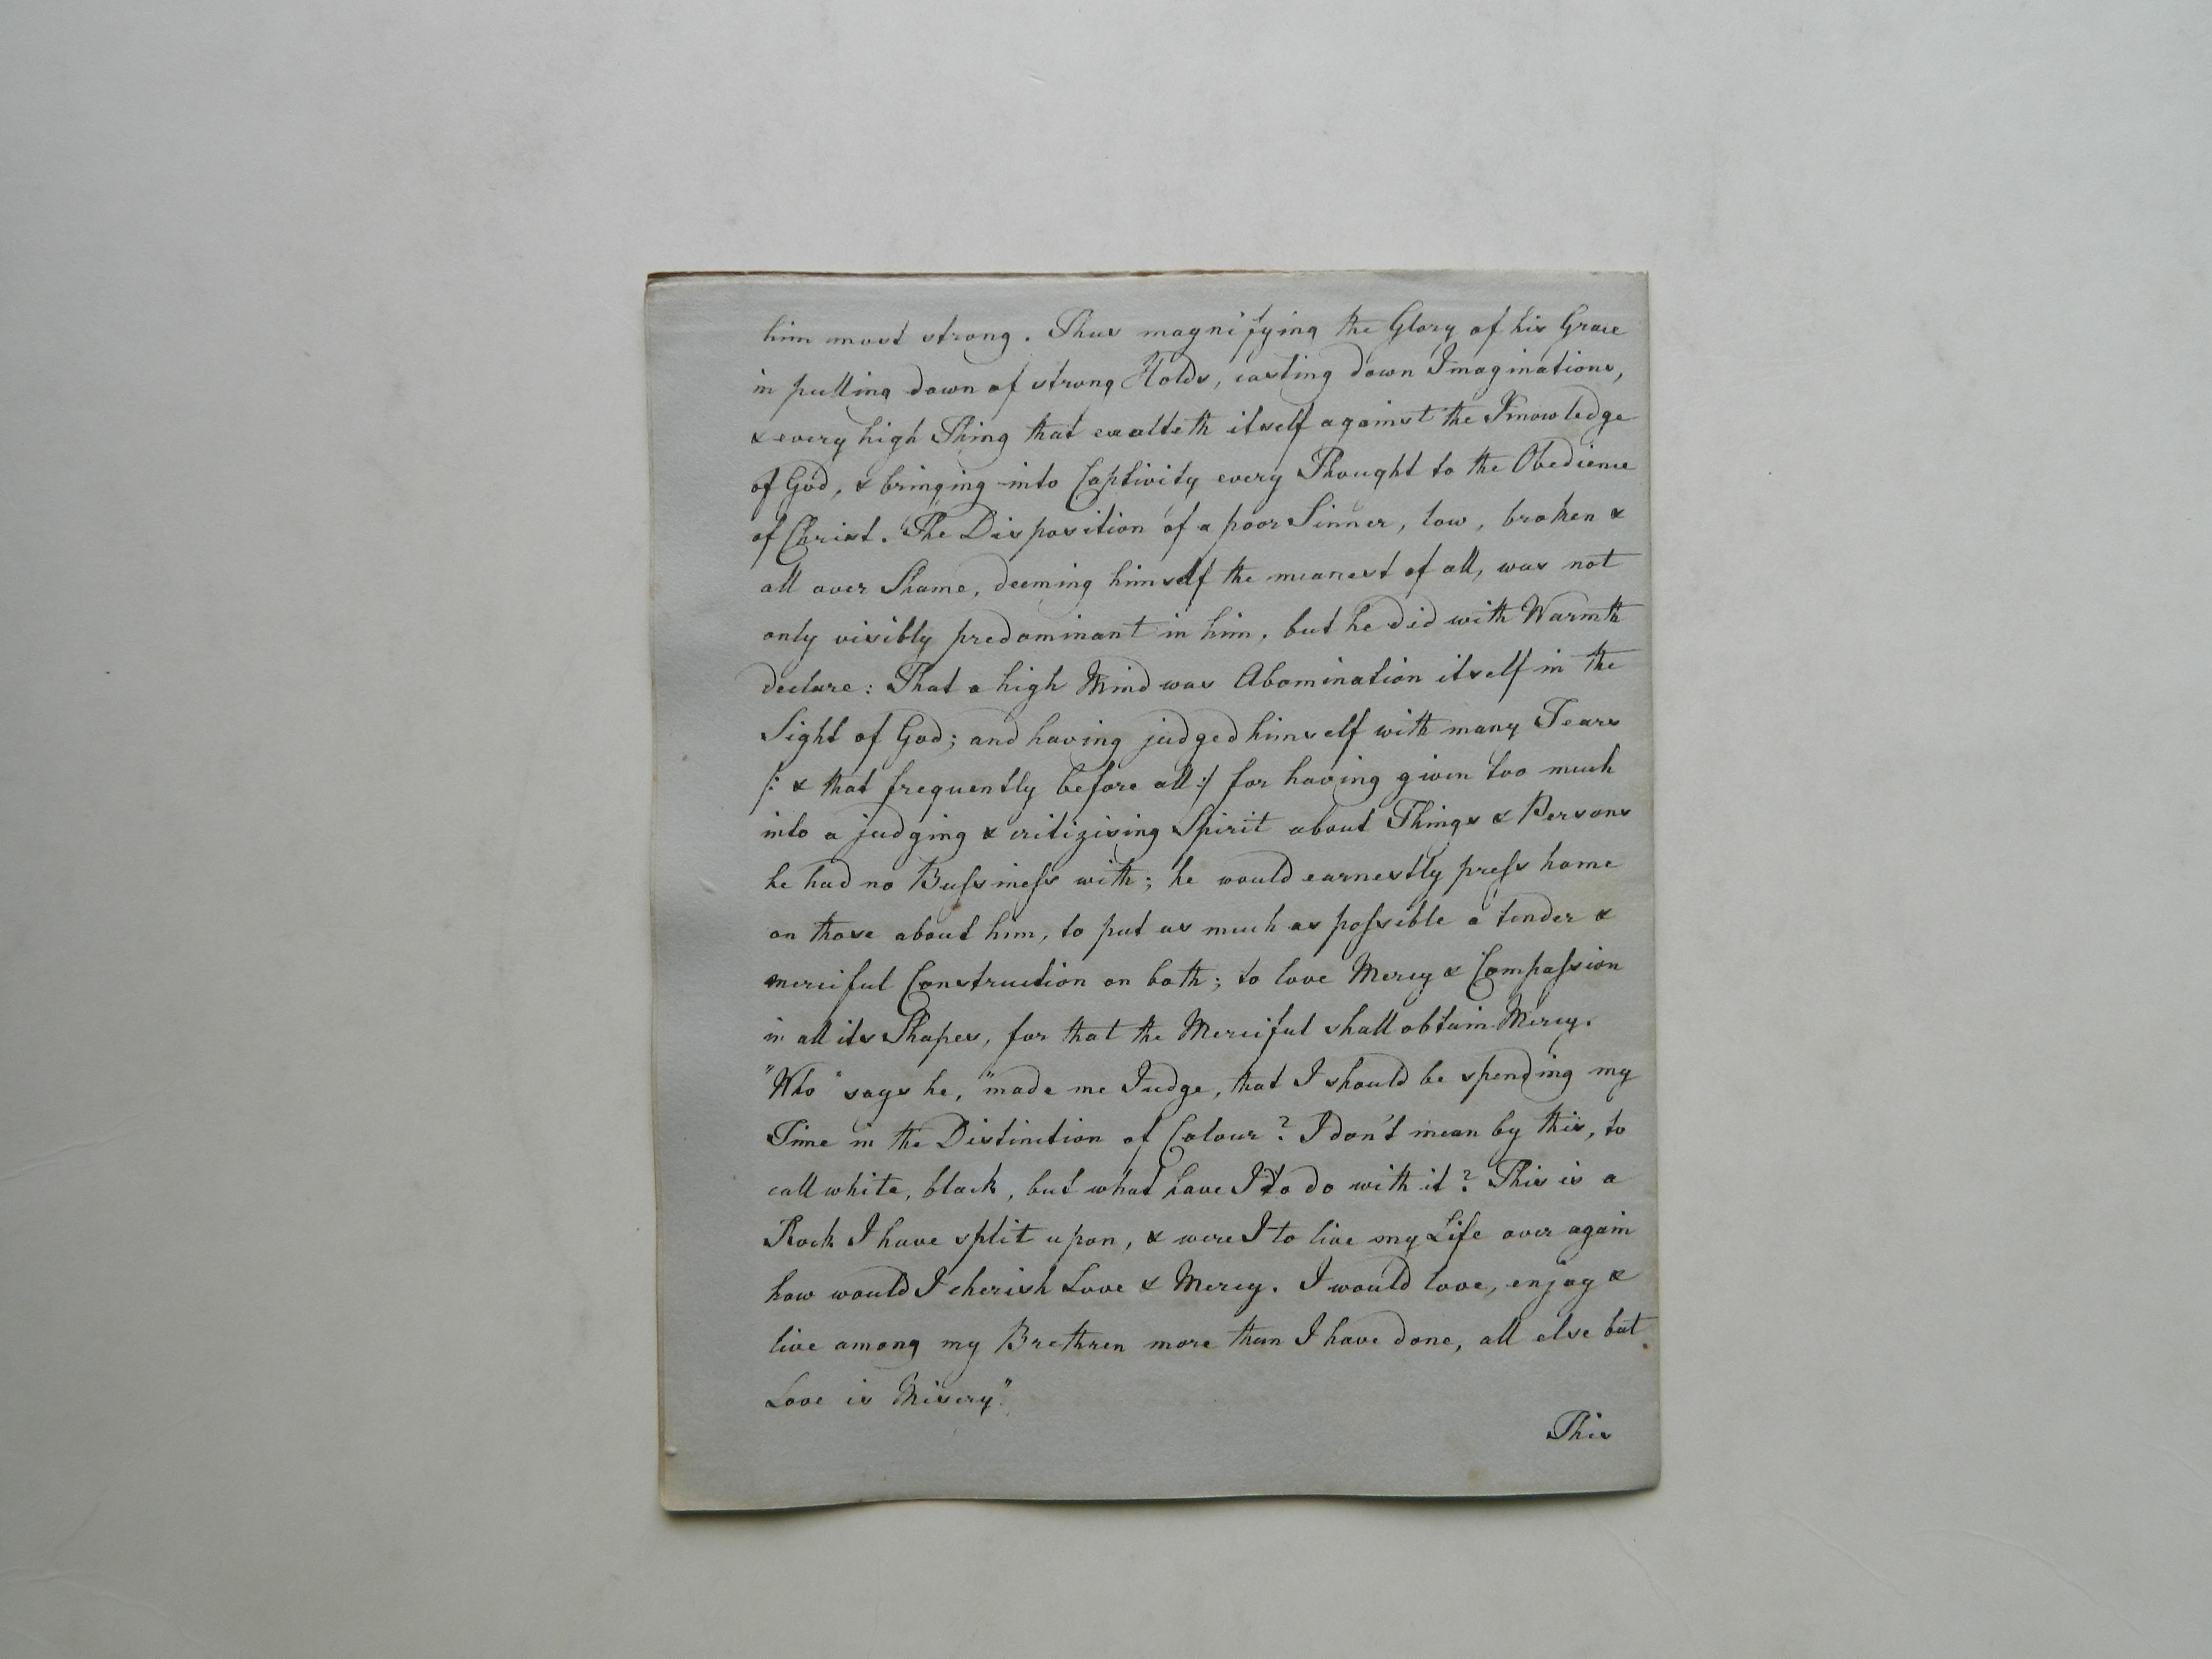 him most strong. Thus magnifying the Glory of his Grace
in pulling down of strong Holds, casting down Imaginations,
& every high Thing that exalteth itself against the Knowledge
of God, & bringing into Captivity every Thought to the Obedience
of Christ. The Disposition of a poor Sinner, low, broken &
all over Shame, deeming himself the meanest of all, was not
only visibly predominant in him, but he did with Warmth
declare: That a high Mind was Abomination itself in the
Sight of God; and having judged himself with many Tears
/: & that frequently before all :/ for having given too much
into a judging & critizising Spirit about Things & Persons
he had no Bussiness with; he would earnestly press home
on those about him, to put as much as possible a tender &
merciful Construction on both; to love Mercy & Compassion
in all its Shapes, for that the Merciful shall obtain Mercy.
"Who" says he, "made me Judge, that I should be spending my
Time in the Distinction of Colour? I don't mean by this, to
call white, black, but what have I to do with it? This is a
Rock I have split upon, & were I to live my Life over again
how would I cherish Love & Mercy. I would love, enjoy &
live among my Brethren more than I have done, all else but
Love is Misery."
This